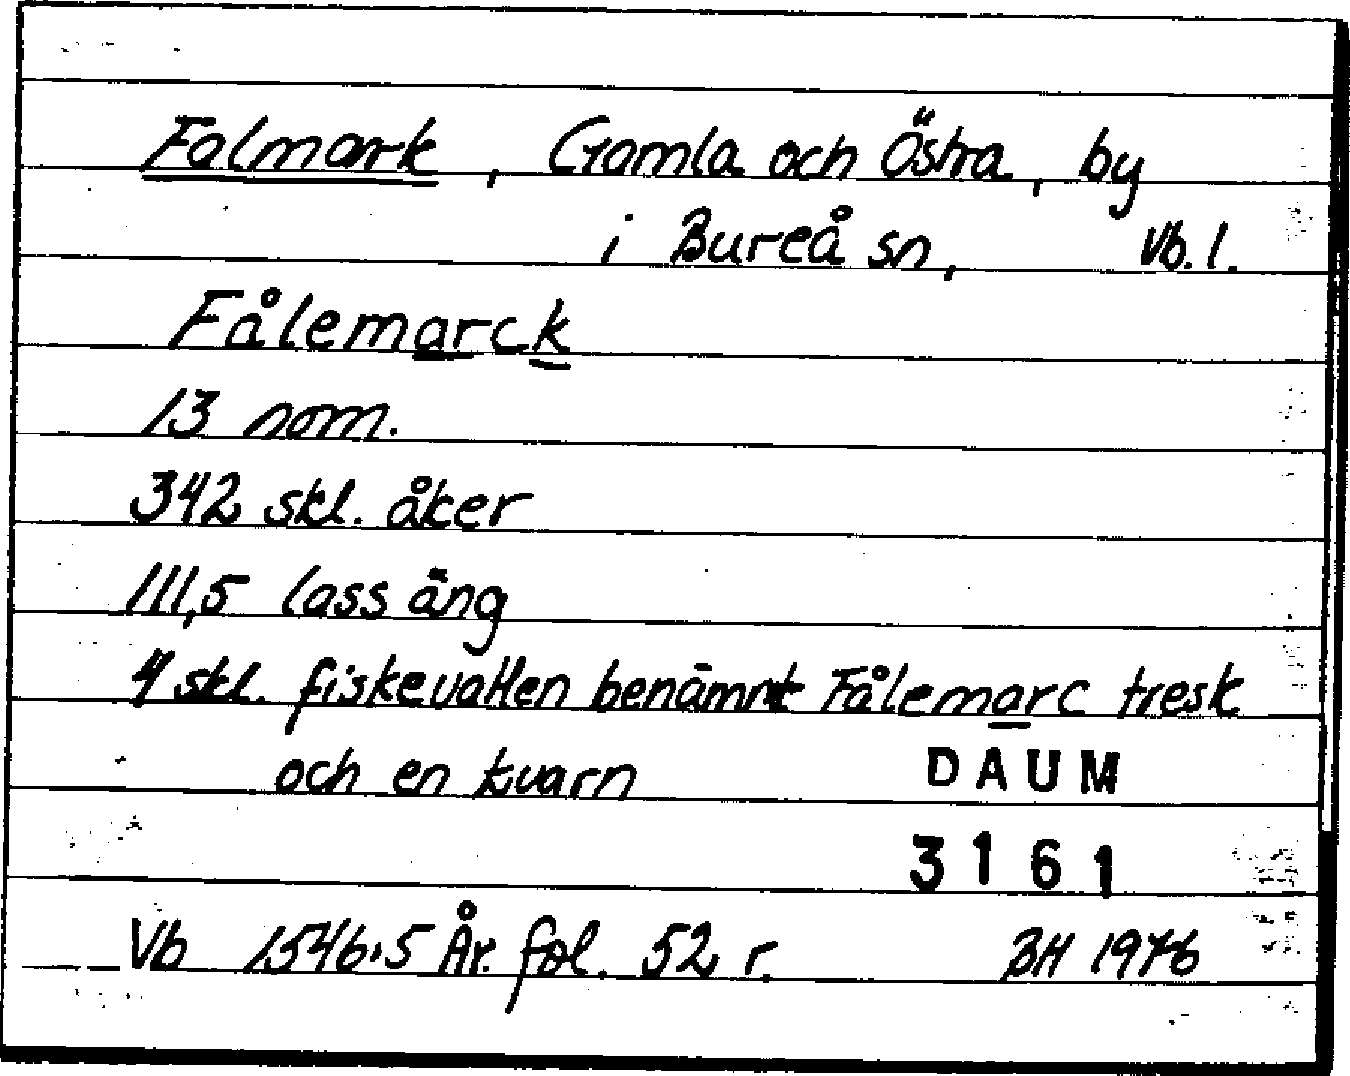 Falmark, Gamla och Östra, by
i Bureå sn, Vb. l.
Fålemarck
13 nom.
342 skl. åker
111,5 lass äng
4 skl. fiskevatten benämnt Fålemarc tresk
och en kvarn
DAUM
3161
Vb 1546:5 År. fol. 52 r. BH 1976